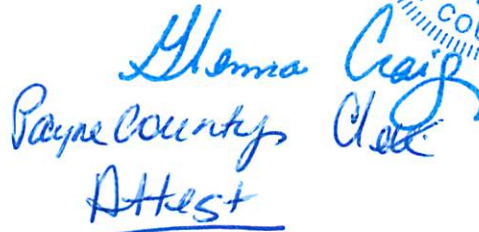 COU
Glenna Craig
Payne County Clerk
Attest